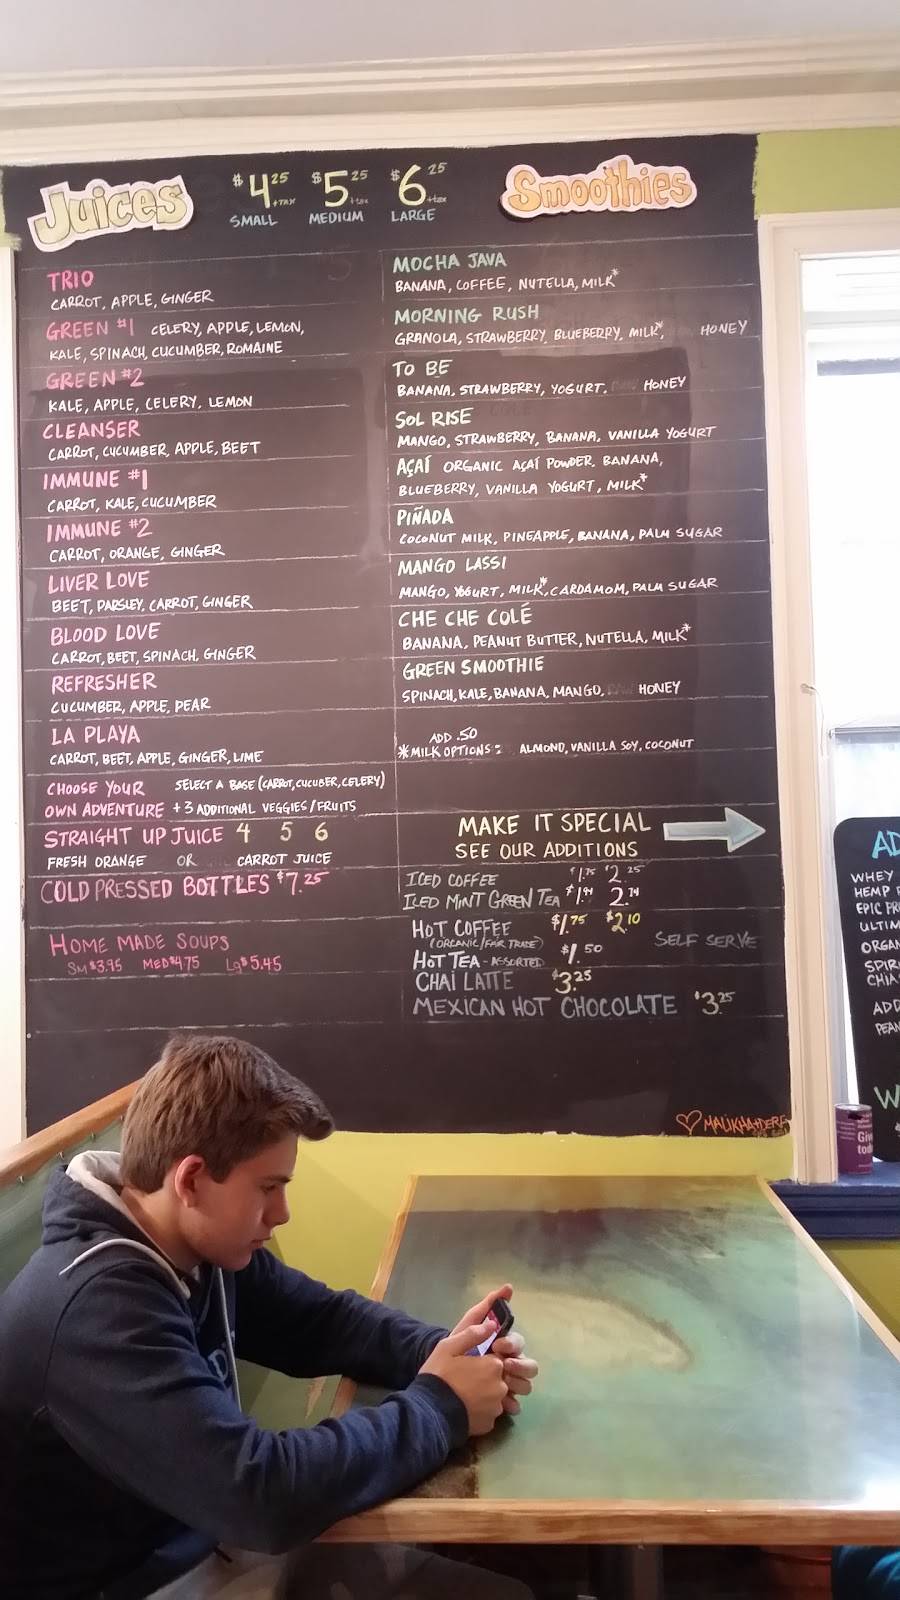 Juices
$4.25 +tax $5.25 +tax $6.25 +tax
SMALL MEDIUM LARGE
Smoothies
TRIO
CARROT, APPLE, GINGER
GREEN #1 CELERY, APPLE, LEMON,
KALE, SPINACH, CUCUMBER, ROMAINE
GREEN #2
KALE, APPLE, CELERY, LEMON
CLEANSER
CARROT, CUCUMBER, APPLE, BEET
IMMUNE #1
CARROT, KALE, CUCUMBER
IMMUNE #2
CARROT, ORANGE, GINGER
LIVER LOVE
BEET, PARSLEY, CARROT, GINGER
BLOOD LOVE
CARROT, BEET, SPINACH, GINGER
REFRESHER
CUCUMBER, APPLE, PEAR
LA PLAYA
CARROT, BEET, APPLE, GINGER, LIME
CHOOSE YOUR SELECT A BASE (CARROT, CUCUBER, CELERY)
OWN ADVENTURE + 3 ADDITIONAL VEGGIES/FRUITS
STRAIGHT UP JUICE 4 5 6
FRESH ORANGE OR CARROT JUICE
COLD PRESSED BOTTLES $7.25
HOME MADE SOUPS
SM $3.95 MED $4.75 Lg $5.45
MOCHA JAVA
BANANA, COFFEE, NUTELLA, MILK*
MORNING RUSH
GRANOLA, STRAWBERRY, BLUEBERRY, MILK*, HONEY
TO BE
BANANA, STRAWBERRY, YOGURT, HONEY
SOL RISE
MANGO, STRAWBERRY, BANANA, VANILLA YOGURT
AÇAÍ ORGANIC AÇAÍ POWDER, BANANA,
BLUEBERRY, VANILLA YOGURT, MILK*
PIÑADA
COCONUT MILK, PINEAPPLE, BANANA, PALM SUGAR
MANGO LASSI
MANGO, YOGURT, MILK*, CARDAMOM, PALM SUGAR
CHE CHE COLÉ
BANANA, PEANUT BUTTER, NUTELLA, MILK*
GREEN SMOOTHIE
SPINACH, KALE, BANANA, MANGO, HONEY
ADD .50
*MILK OPTIONS: ALMOND, VANILLA SOY, COCONUT
MAKE IT SPECIAL
SEE OUR ADDITIONS
ICED COFFEE $1.75 $2.25
ICED MINT GREEN TEA
HOT COFFEE $1.75 $2.10
(ORGANIC/FAIR TRADE) SELF SERVE
HOT TEA - ASSORTED $1.50
CHAI LATTE $3.25
MEXICAN HOT CHOCOLATE $3.25
AD
WHEY
HEMP
EPIC
ULTIM
ORGAN
SPIR
CHIA
ADD
PEAN
W